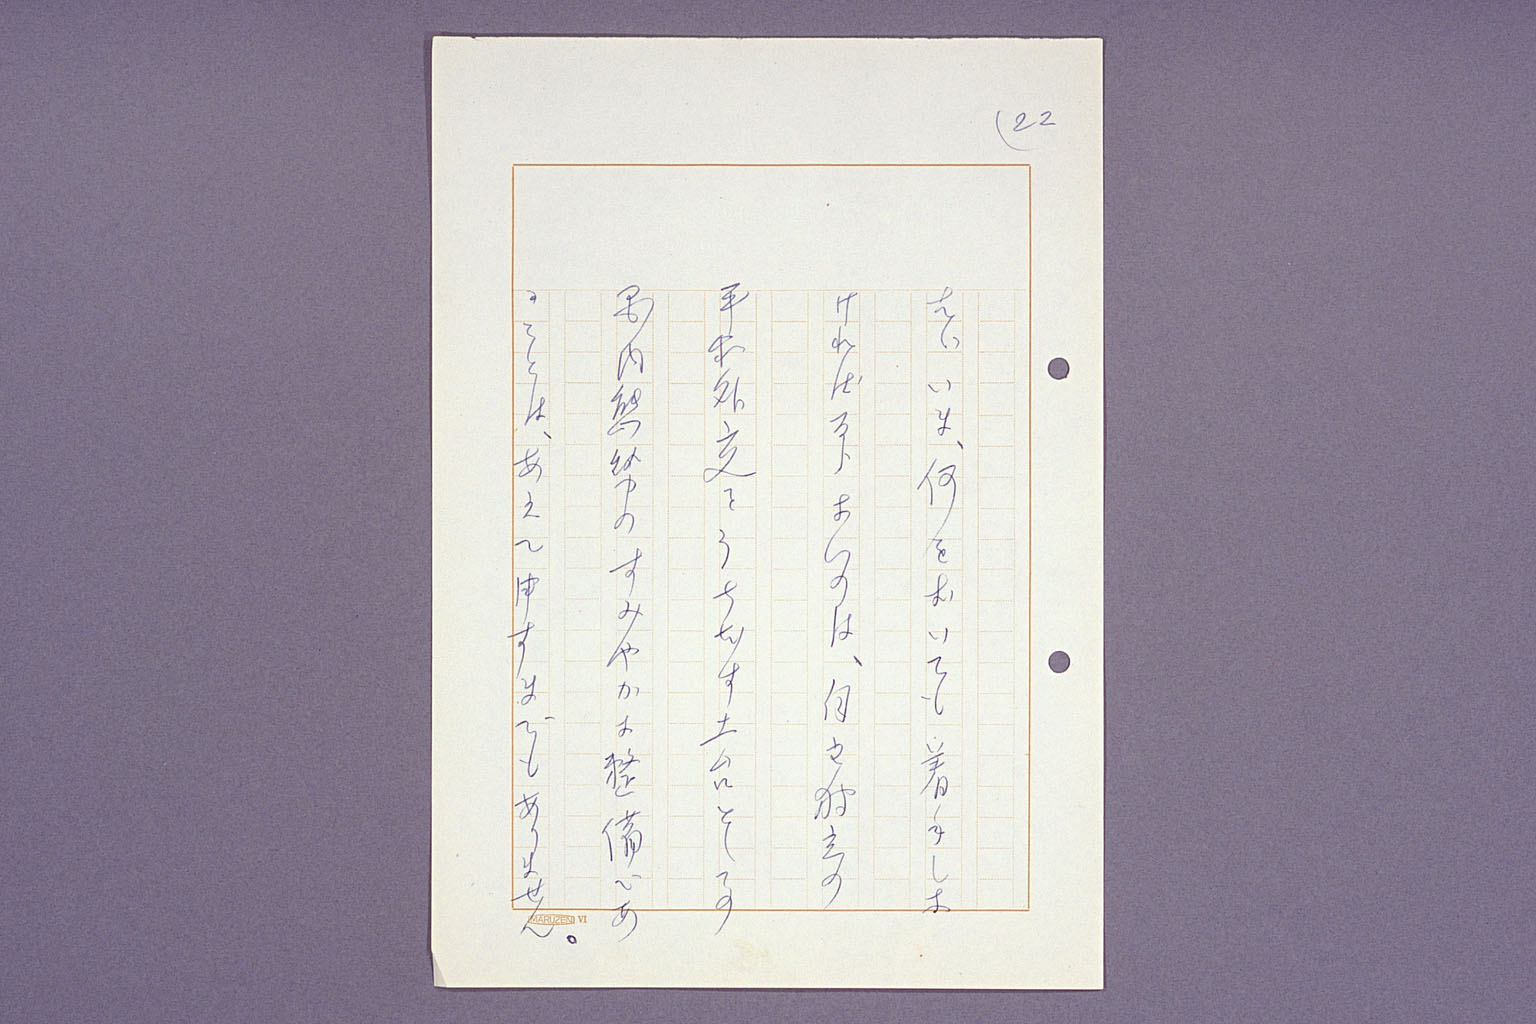 (22
さい いま、何をおいても着手しな
ければならないのは、自主独立の
平和外交をうちだす土台としての
国内態勢のすみやかな整備であ
ることは、あえて申すまでもありません。
MARUZEN VI